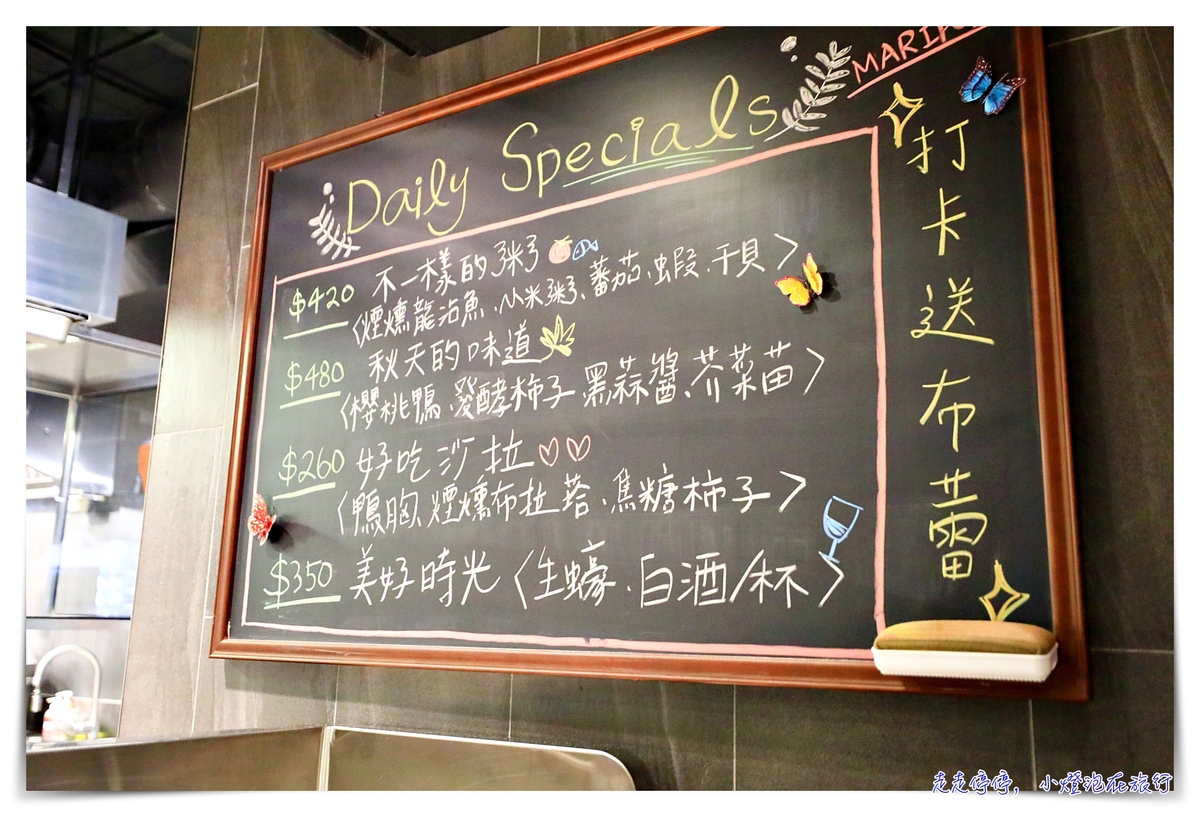 Daily Specials
$420 不一樣的粥
〈煙燻龍沾魚、小米粥、蕃茄、蝦、干貝〉
$480 秋天的味道
〈櫻桃鴨、發酵柿子、黑蒜醬、芥菜苗〉
$260 好吃沙拉
〈鴨胸、煙燻布拉塔、焦糖柿子〉
$350 美好時光〈生蠔、白酒/杯〉
打卡送布蕾
走走停停，小燈泡在旅行